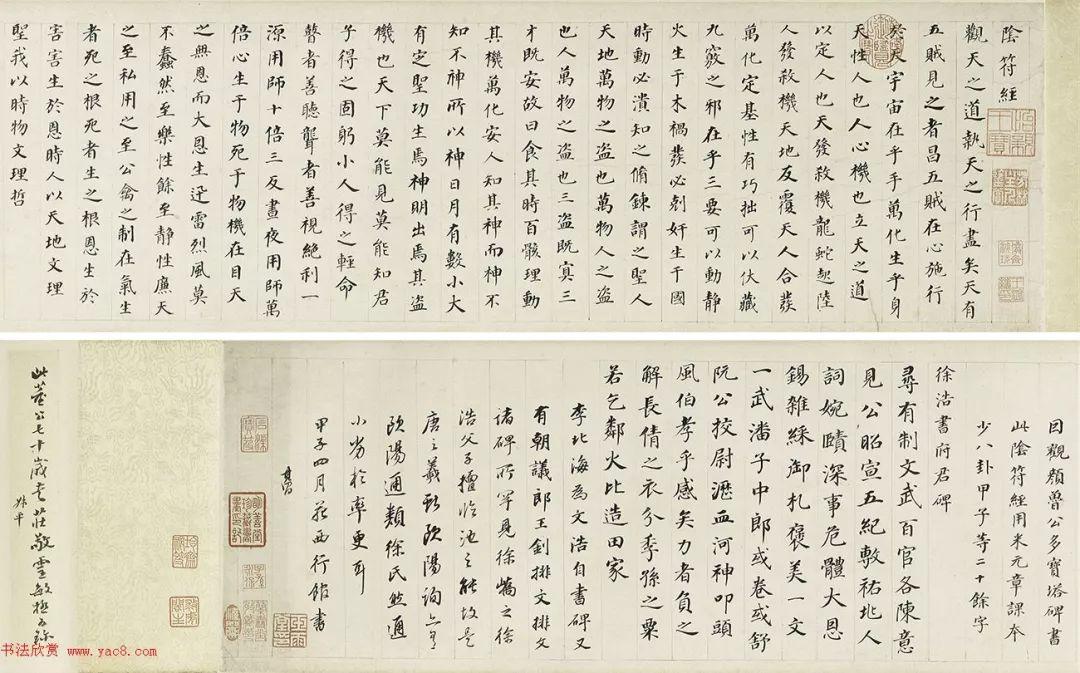 陰符經
觀天之道執天之行盡矣天有
五賊見之者昌五賊在心施行
於天宇宙在乎手萬化生乎身
天性人也人心機也立天之道
以定人也天發殺機龍蛇起陸
人發殺機天地反覆天人合發
萬化定基性有巧拙可以伏藏
九竅之邪在乎三要可以動靜
火生于木禍發必剋奸生于國
時動必潰知之脩鍊謂之聖人
天地萬物之盜也萬物人之盜
也人萬物之盜也三盜既宜三
才既安故曰食其時百骸理動
其機萬化安人知其神而神不
知不神所以神日月有數小大
有定聖功生焉神明出焉其盜
機也天下莫能見莫能知君
子得之固躬小人得之輕命
瞽者善聽聾者善視絕利一
源用師十倍三反晝夜用師萬
倍心生于物死于物機在目天
之無恩而大恩生迅雷烈風莫
不蠢然至樂性餘至靜性廉天
之至私用之至公禽之制在氣生
者死之根死者生之根恩生於
害害生於恩時人以天地文理
聖我以時物文理哲
因觀顏魯公多寶塔碑書
此陰符經用米元章課本
少八卦甲子等二十餘字
徐浩書府君碑
尋有制文武百官各陳意
見公昭宣五紀敷祐兆人
詞婉賾深事危體大恩
錫雜綵御札褒美一文
一武潘子中郎或卷或舒
阮公校尉瀝血河神叩頭
風伯孝乎感矣力者負之
解長倩之衣分季孫之粟
若乞鄰火比造田家
李北海為文浩自書碑又
有朝議郎王釗排文排文
諸碑所罕見徐嶠之徐
浩父子擅臨池之能故是
唐之羲獻歐陽詢之有
歐陽通類徐氏然通
小劣於率更耳
甲子四月苑西行館書
其昌
此董公七十歲書莊敬靈敏極
书法欣赏 www.yac8.com